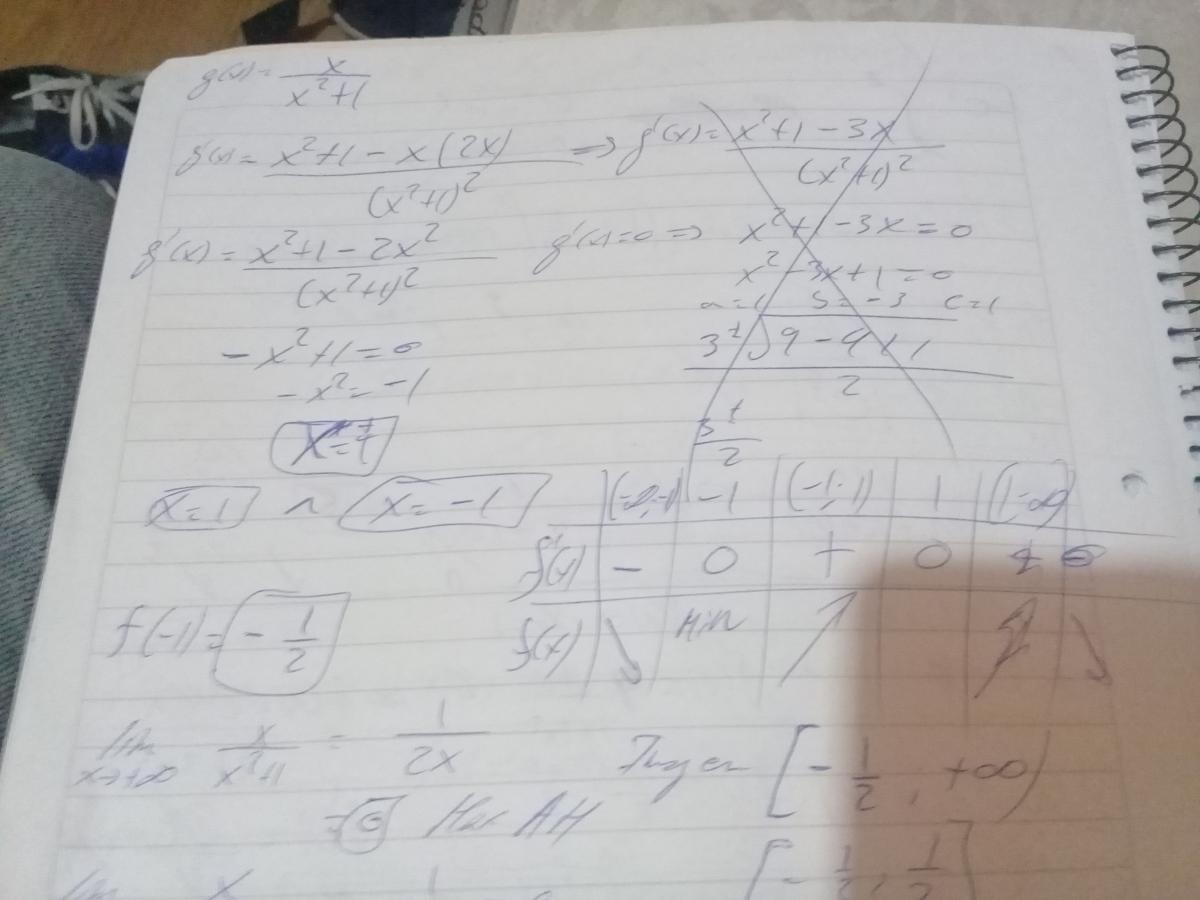 g(x) = x / (x²+1)
g'(x) = (x²+1 - x(2x)) / (x²+1)² => g'(x) = (x²+1 - 3x) / (x²+1)²
g'(x) = (x²+1 - 2x²) / (x²+1)² g'(x)=0 => x²+1 - 3x = 0
x² - 3x + 1 = 0
-x²+1 = 0 a=1 b=-3 c=1
-x² = -1 3 ± √(9 - 4·1·1) / 2
3 ± / 2
x=1 ∧ x=-1
(-∞,-1) -1 (-1,1) 1 (1,∞)
f'(x) - 0 + 0
f(x) ↘ Min ↗ ↘
f(-1) = -1/2
lim x→+∞ x/(x²+1) = 1/2x [-1/2, +∞)
= 0 AH
lim x 1 [-1/2, 1/2]